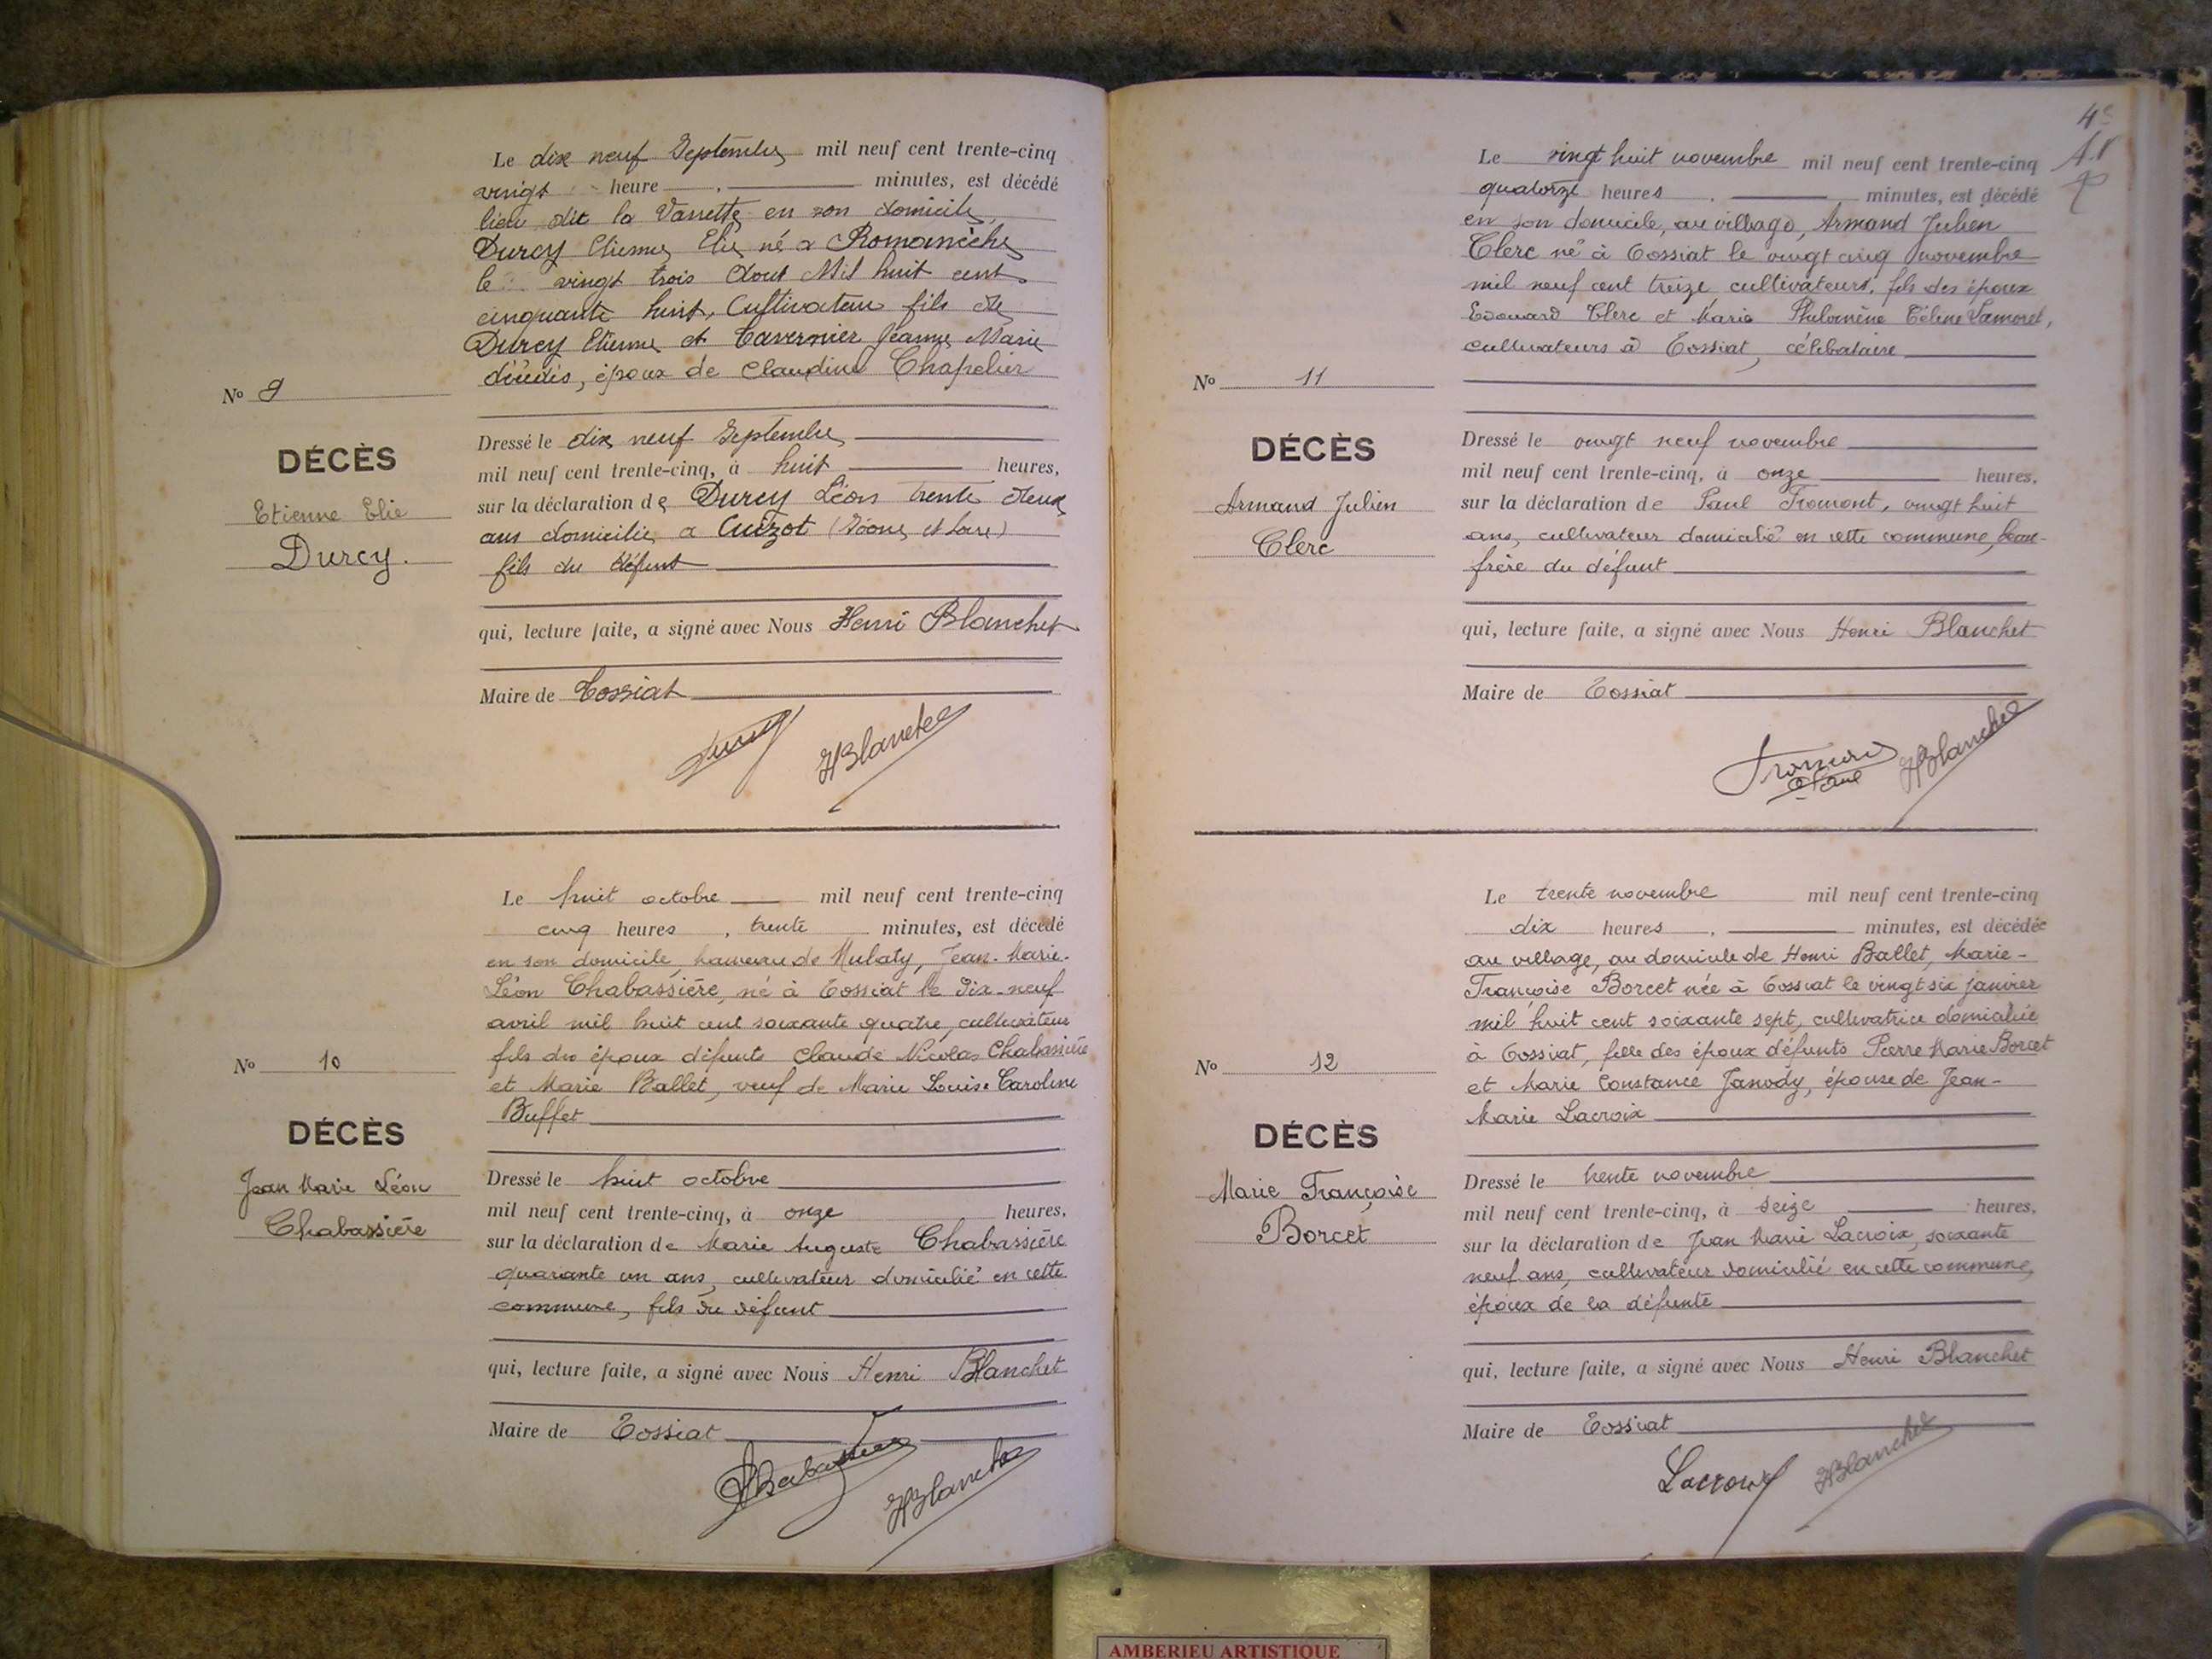 Le dix neuf Septembre mil neuf cent trente-cinq
vingt heure , minutes, est décédé
lieu dit la Vavrette en son domicile,
Durcy Etienne Elie né a Romanèche
le vingt trois Aout Mil huit cent
cinquante huit, Cultivateur fils de
Durcy Etienne et Tavernier Jeanne Marie
décédés, époux de Claudine Chapelier
No 9
DÉCÈS
Etienne Elie
Durcy.
Dressé le dix neuf Septembre
mil neuf cent trente-cinq, à huit heures,
sur la déclaration de Durcy Léon trente deux
ans domicilié a Cuizot (Saone et Loire)
fils du défunt
qui, lecture faite, a signé avec Nous Henri Blanchet
Maire de Tossiat
Durcy HBlanchet
Le huit octobre mil neuf cent trente-cinq
cinq heures , trente minutes, est décédé
en son domicile, hameau de Mulaty, Jean-Marie-
Léon Chabassière, né à Tossiat le dix-neuf
avril mil huit cent soixante quatre, cultivateur
fils des époux défunts Claude Nicolas Chabassière
et Marie Ballet, veuf de Marie Louise Caroline
Buffet
No 10
DÉCÈS
Jean Marie Léon
Chabassière
Dressé le huit octobre
mil neuf cent trente-cinq, à onze heures,
sur la déclaration de Marie Auguste Chabassière
quarante un ans, cultivateur domicilié en cette
commune, fils du défunt
qui, lecture faite, a signé avec Nous Henri Blanchet
Maire de Tossiat
Chabassière HBlanchet
4e
Le vingt huit novembre mil neuf cent trente-cinq
quatorze heures , minutes, est décédé
en son domicile, au village, Armand Julien
Clerc né à Tossiat le vingt cinq novembre
mil neuf cent treize cultivateurs, fils des époux
Edouard Clerc et Marie Philomène Céline Jamoret,
cultivateurs à Tossiat, célibataire
No 11
DÉCÈS
Armand Julien
Clerc
Dressé le vingt neuf novembre
mil neuf cent trente-cinq, à onze heures,
sur la déclaration de Paul Fromont, vingt huit
ans, cultivateur domicilié en cette commune, beau-
frère du défunt
qui, lecture faite, a signé avec Nous Henri Blanchet
Maire de Tossiat
Fromont Paul HBlanchet
Le trente novembre mil neuf cent trente-cinq
dix heures , minutes, est décédée
au village, au domicile de Henri Ballet, Marie-
Françoise Borcet née à Tossiat le vingt six janvier
mil huit cent soixante sept, cultivatrice domiciliée
à Tossiat, fille des époux défunts Pierre Marie Borcet
et Marie Constance Janody, épouse de Jean-
Marie Lacroix
No 12
DÉCÈS
Marie Françoise
Borcet
Dressé le trente novembre
mil neuf cent trente-cinq, à seize heures,
sur la déclaration de Jean Marie Lacroix, soixante
neuf ans, cultivateur domicilié en cette commune,
époux de la défunte
qui, lecture faite, a signé avec Nous Henri Blanchet
Maire de Tossiat
Lacroix HBlanchet
AMBERIEU ARTISTIQUE